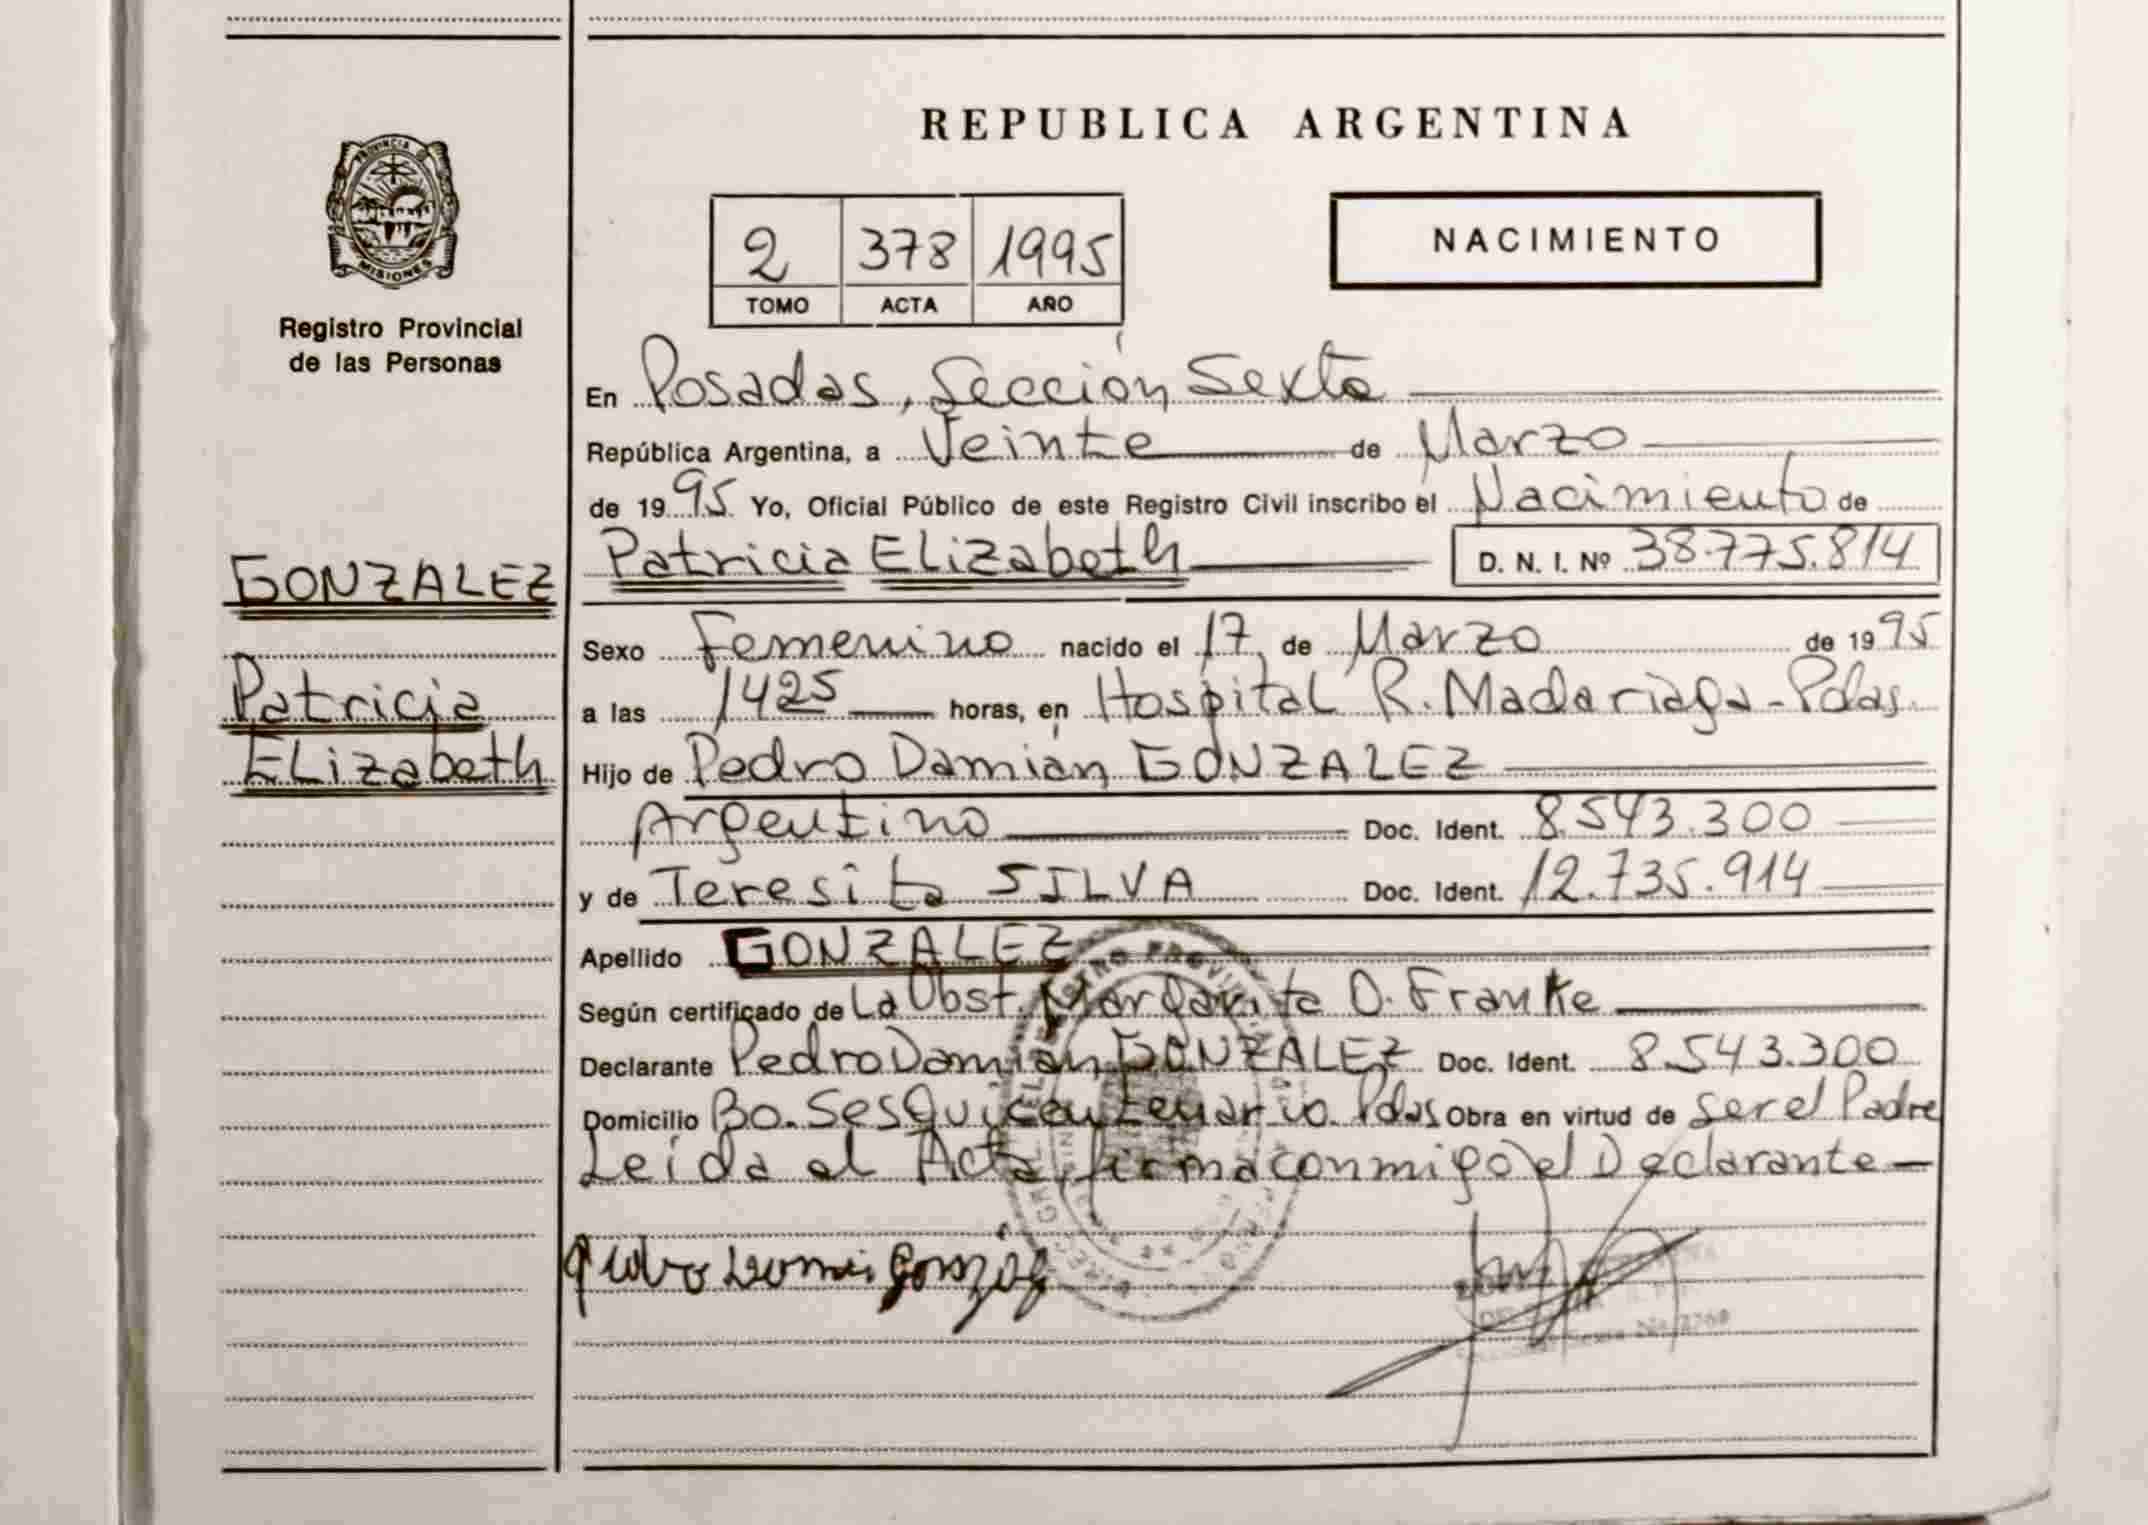 REPUBLICA ARGENTINA
PROVINCIA D
MISIONES
Registro Provincial
de las Personas
2 378 1995
TOMO ACTA AÑO
NACIMIENTO
En Posadas, Sección Sexta
República Argentina, a Veinte de Marzo
de 1995 Yo, Oficial Público de este Registro Civil inscribo el Nacimiento de
GONZALEZ
Patricia
Elizabeth
Patricia Elizabeth D. N. I. Nº 38.775.814
Sexo Femenino nacido el 17 de Marzo de 1995
a las 1425 horas, en Hospital R. Madariaga - Pdas.
Hijo de Pedro Damián GONZALEZ
Argentino Doc. Ident. 8.543.300
y de Teresita SILVA Doc. Ident. 12.735.914
Apellido GONZALEZ
Según certificado de La Obst. Margarita O. Franke
Declarante Pedro Damián GONZALEZ Doc. Ident. 8.543.300
Domicilio Bo. Sesquicentenario. Pdas Obra en virtud de ser el Padre
Leída al Acta, firma conmigo el Declarante